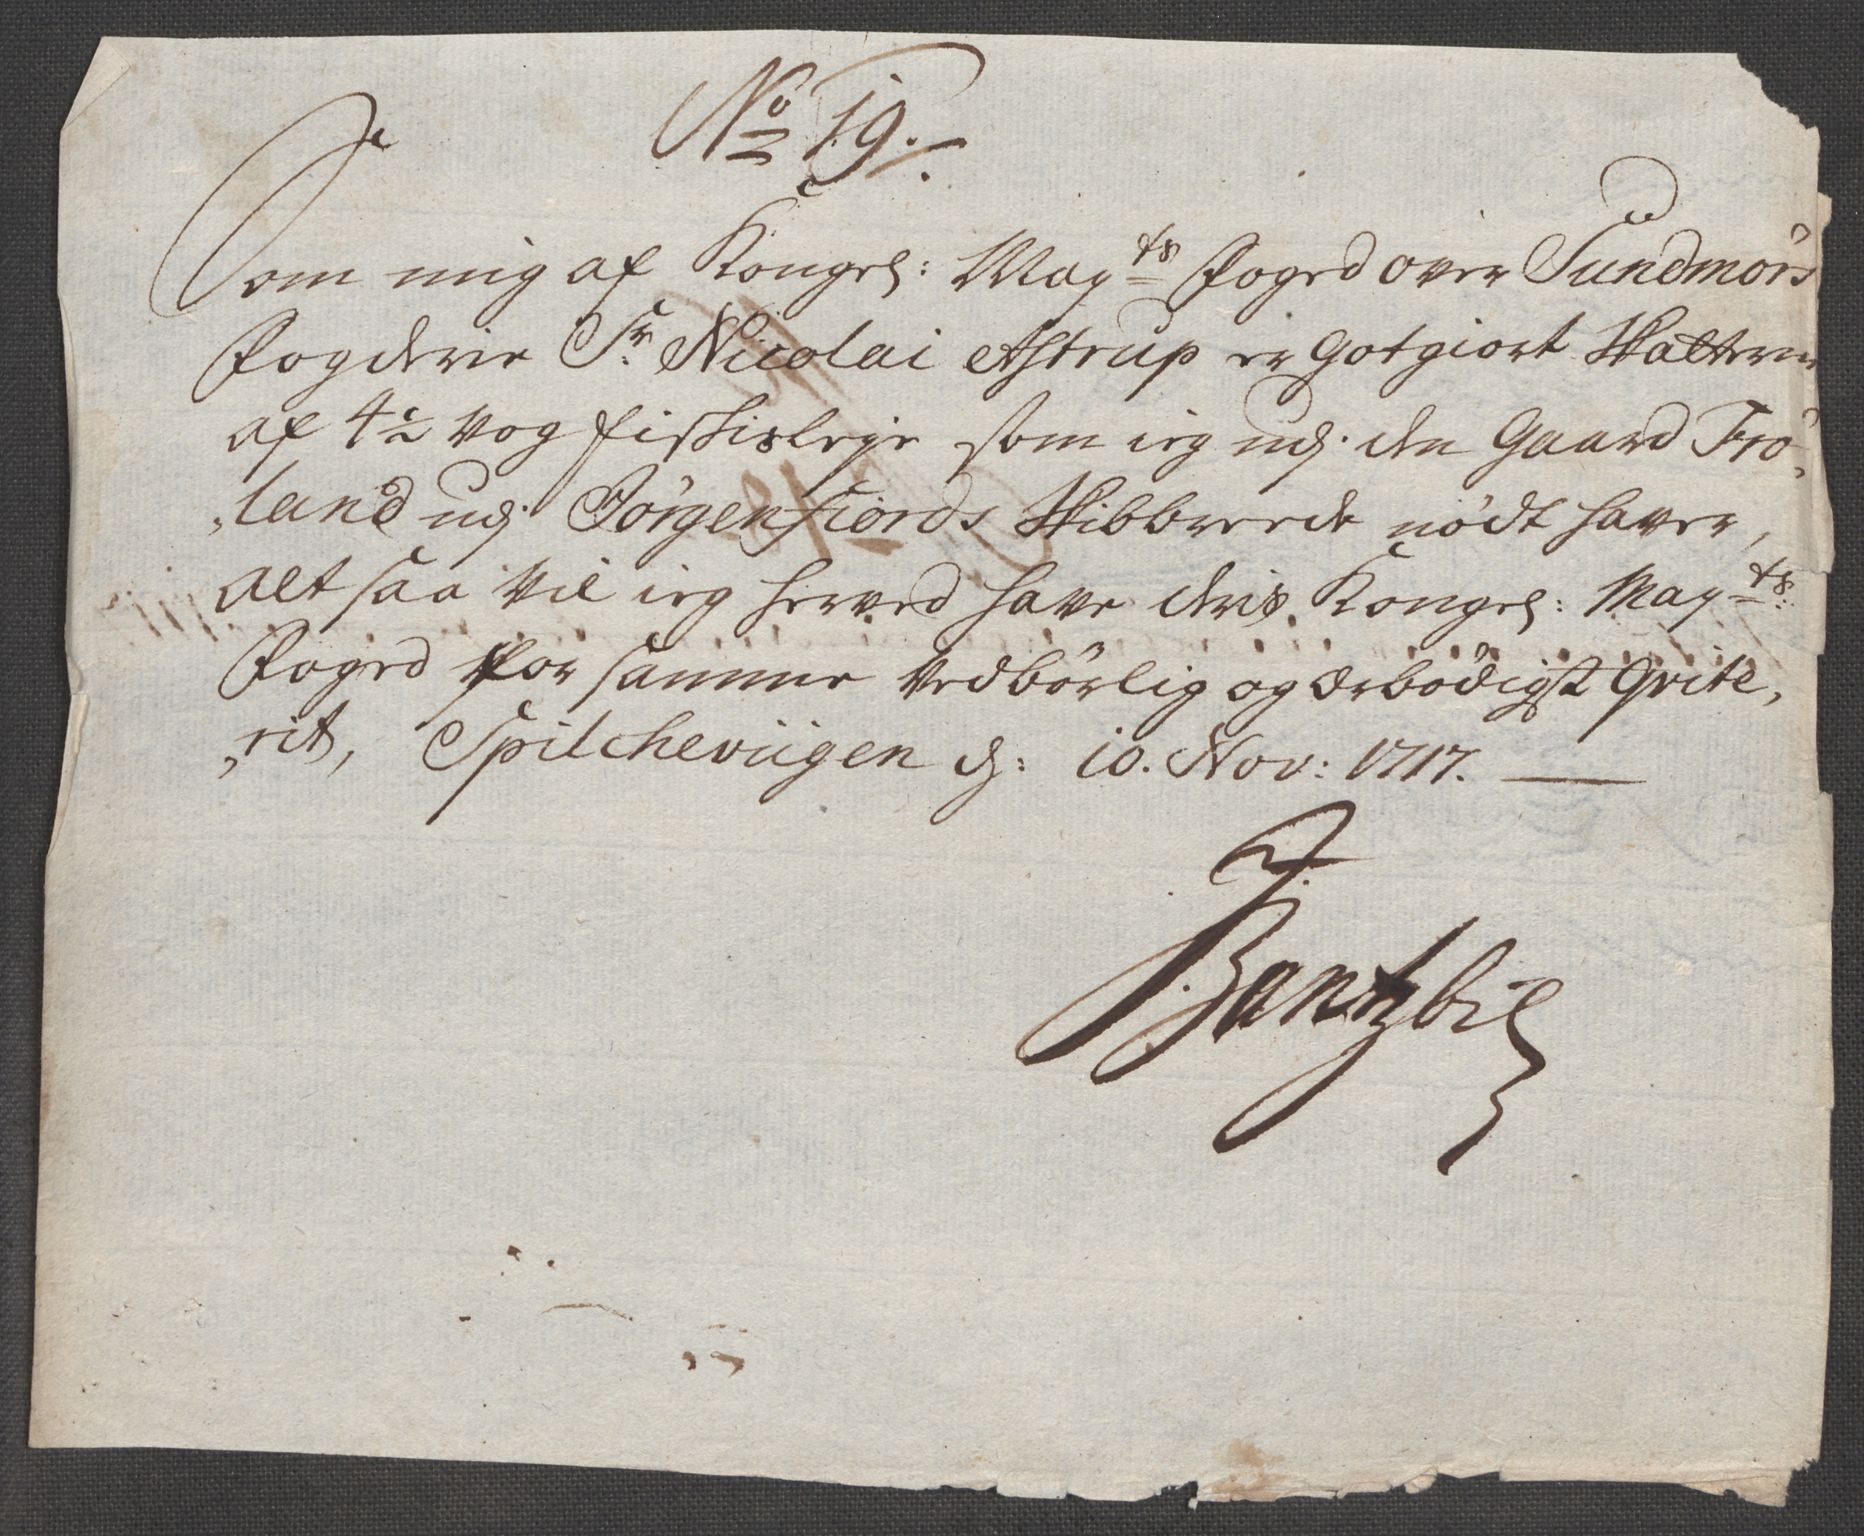 No 19.
Som mig af Kongel: Mayts Foged over Sundmörs
Fogderie Sr. Nicolai Astrup er Gotgiort Skatterne
af 4½ Vog fiskisleje som ieg udj den Gaard Frö„
„land udj Jörgenfiords Skibbreede nödt haver,
alt saa Vil ieg herved have deris Kongel: Mayts:
Foged for samme Vedbörlig og ærbödigst Qvite„
„rit, Spilcheviigen d: 10. Nov: 1717.
Bantzbil